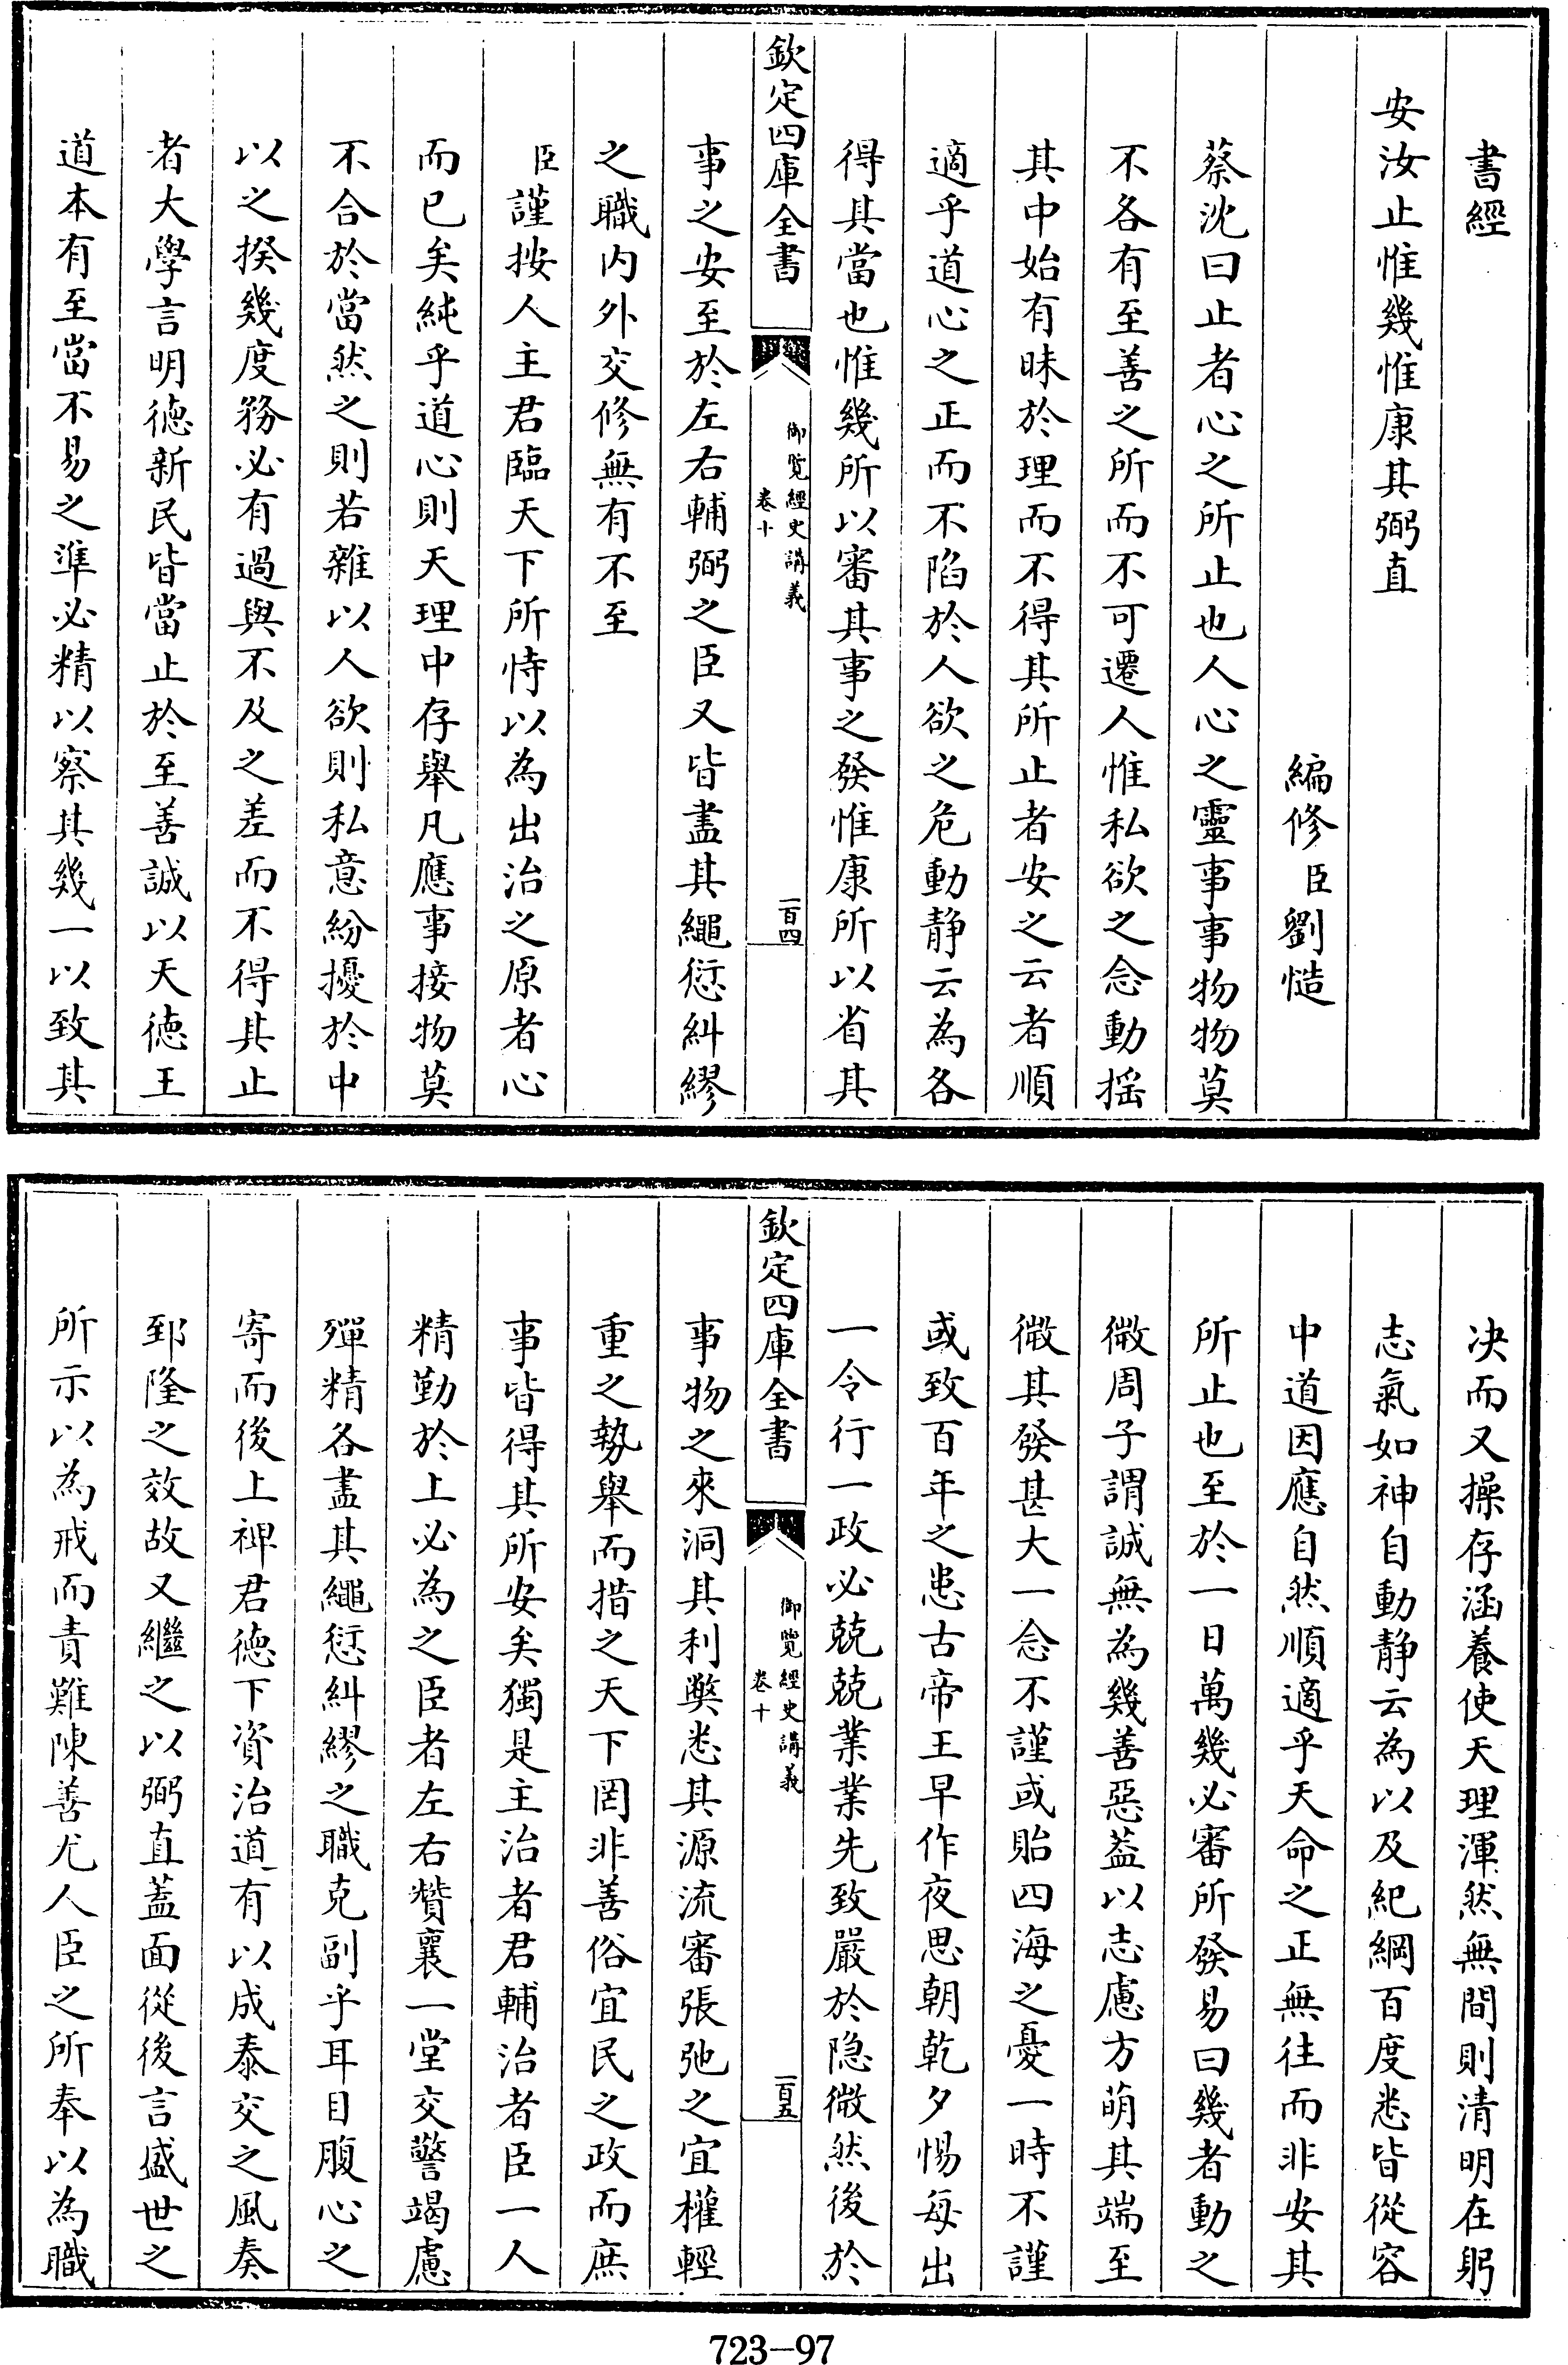 書經
安汝止惟幾惟康其弼直
編修臣劉慥
蔡沈曰止者心之所止也人心之靈事事物物莫
不各有至善之所而不可遷人惟私欲之念動揺
其中始有昧於理而不得其所止者安之云者順
適乎道心之正而不陷於人欲之危動静云為各
得其當也惟幾所以審其事之發惟康所以省其
欽定四庫全書
御覽經史講義
卷十
一百四
事之安至於左右輔弼之臣又皆盡其繩愆糾繆
之職内外交修無有不至
臣謹按人主君臨天下所恃以為出治之原者心
而已矣純乎道心則天理中存舉凡應事接物莫
不合於當然之則若雜以人欲則私意紛擾於中
以之揆幾度務必有過與不及之差而不得其止
者大學言明德新民皆當止於至善誠以天德王
道本有至當不易之準必精以察其幾一以致其
决而又操存涵養使天理渾然無間則清明在躬
志氣如神自動静云為以及紀綱百度悉皆從容
中道因應自然順適乎天命之正無往而非安其
所止也至於一日萬幾必審所發易曰幾者動之
微周子謂誠無為幾善惡葢以志慮方萌其端至
微其發甚大一念不謹或貽四海之憂一時不謹
或致百年之患古帝王早作夜思朝乾夕惕每出
一令行一政必兢兢業業先致嚴於隱微然後於
欽定四庫全書
御覽經史講義
卷十
一百五
事物之來洞其利弊悉其源流審張弛之宜權輕
重之勢舉而措之天下罔非善俗宜民之政而庶
事皆得其所安矣獨是主治者君輔治者臣一人
精勤於上必為之臣者左右贊襄一堂交警竭慮
殫精各盡其繩愆糾繆之職克副乎耳目腹心之
寄而後上禆君德下資治道有以成泰交之風奏
郅隆之效故又繼之以弼直葢面從後言盛世之
所示以為戒而責難陳善尤人臣之所奉以為職
723-97